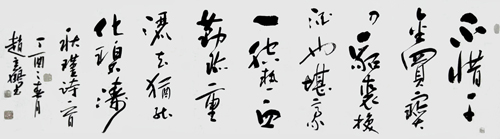 不惜千
金買寶
刀貂裘換
酒也堪豪
一腔熱血
勤珍重
灑去猶能
化碧濤
秋瑾詩一首
丁酉之春月
趙書